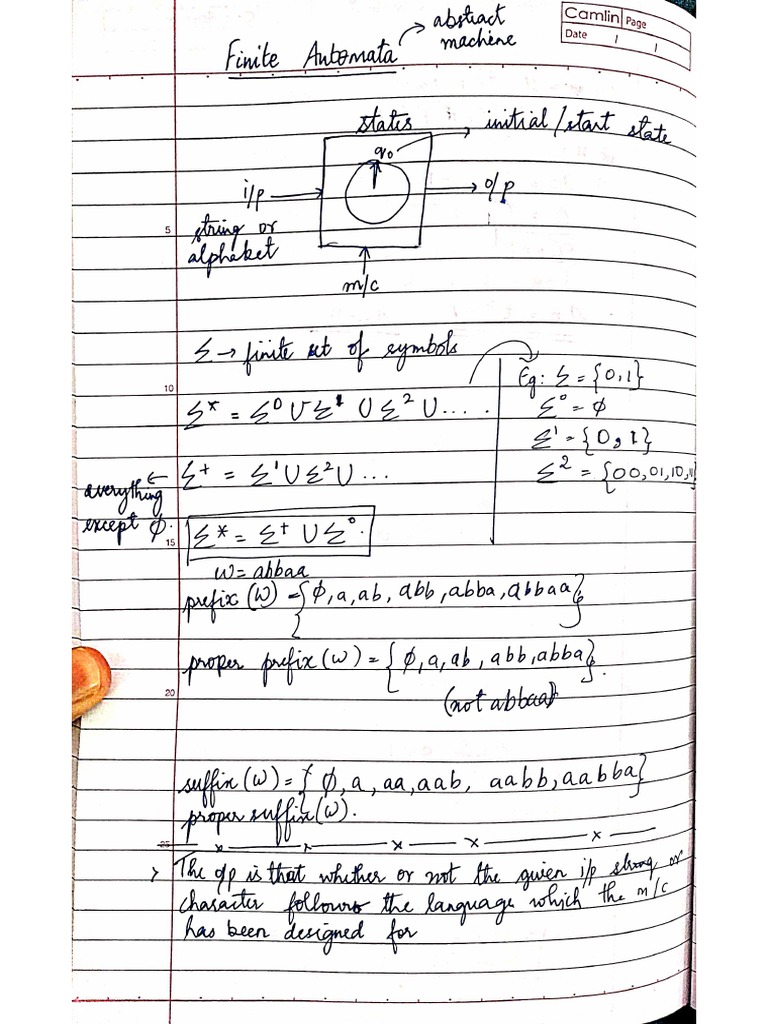 Camlin Page
Date / /
Finite Automata → abstract machine
states
q₀ → initial/start state
i/p → → o/p
string or
alphabet
m/c
5
Σ → finite set of symbols
10
Σ* = Σ⁰ ∪ Σ¹ ∪ Σ² ∪ .... .
Eg: Σ = {0,1}
Σ⁰ = φ
Σ¹ = {0,1}
Σ² = {00,01,10,11
Σ⁺ = Σ¹ ∪ Σ² ∪ ...
everything
except φ.
Σ* = Σ⁺ ∪ Σ⁰.
15
w = abbaa
prefix (w) = {φ, a, ab, abb, abba, abbaa}
proper prefix (w) = {φ, a, ab, abb, abba}.
20
(not abbaa)
suffix (w) = { φ, a, aa, aab, aabb, aabba}
proper suffix (w).
25
x x x x x
> The o/p is that whether or not the given i/p string or
character follows the language which the m/c
has been designed for